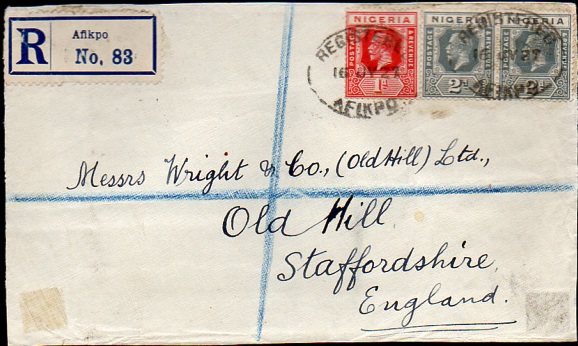 R
Afikpo
No. 83
NIGERIA
POSTAGE
& REVENUE
1D
NIGERIA
POSTAGE
& REVENUE
2D
NIGERIA
POSTAGE
& REVENUE
REGISTERED
AFIKPO
REGISTERED
AFIKPO
Messrs Wright & Co., (Old Hill) Ltd.,
Old Hill
Staffordshire
England.